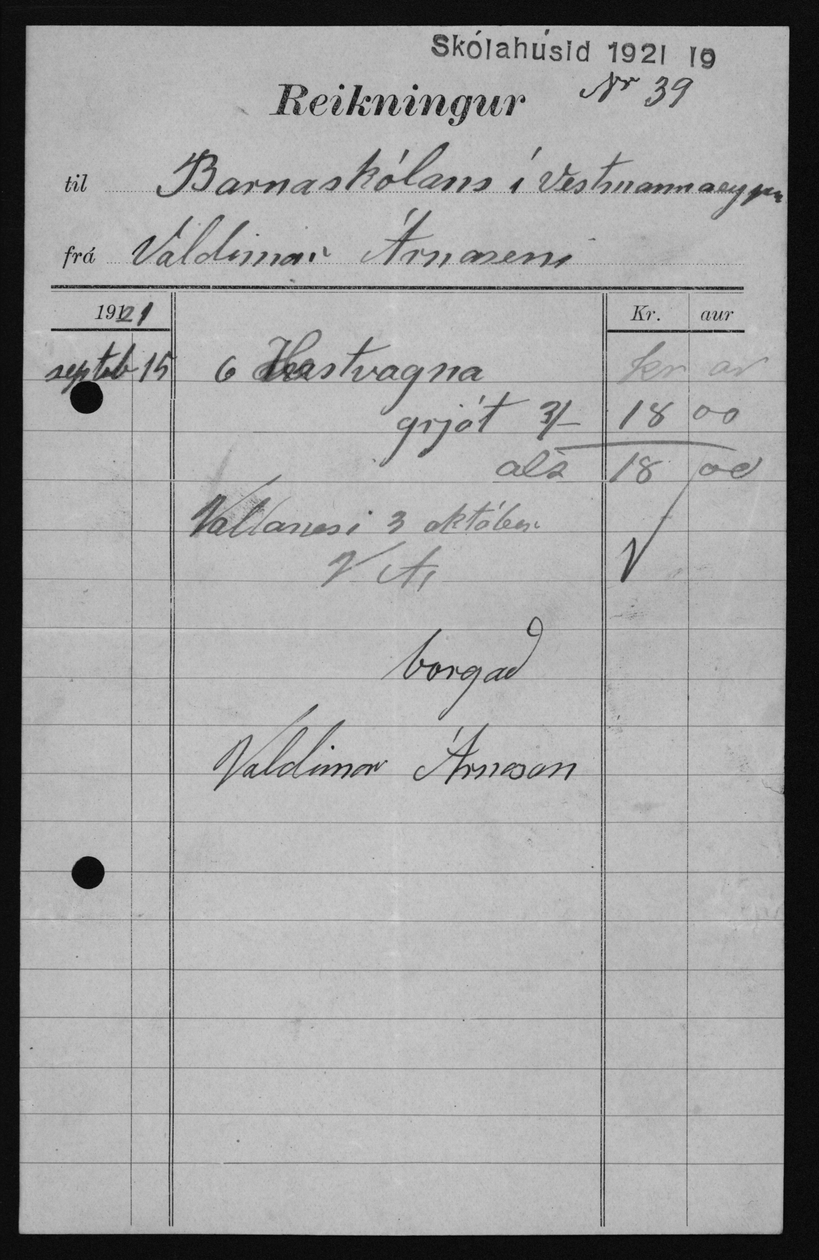 Skólahúsid 1921 19
Reikningur Nr 39
til Barnaskólans í Vestmannaeyjum
frá Valdimar Árnaseni
1921 Kr. aur
septeb 15 6 Hestvagna kr ar
grjót 3/- 18 00
als 18 00
Vallanesi 3 október
V. A,
borgað
Valdimar Árnason